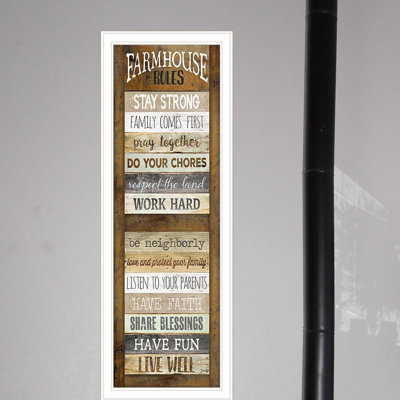 FARMHOUSE
RULES
STAY STRONG
FAMILY COMES FIRST
pray together
DO YOUR CHORES
respect the land
WORK HARD
be neighborly
love and protect your family
LISTEN TO YOUR PARENTS
HAVE FAITH
SHARE BLESSINGS
HAVE FUN
LIVE WELL